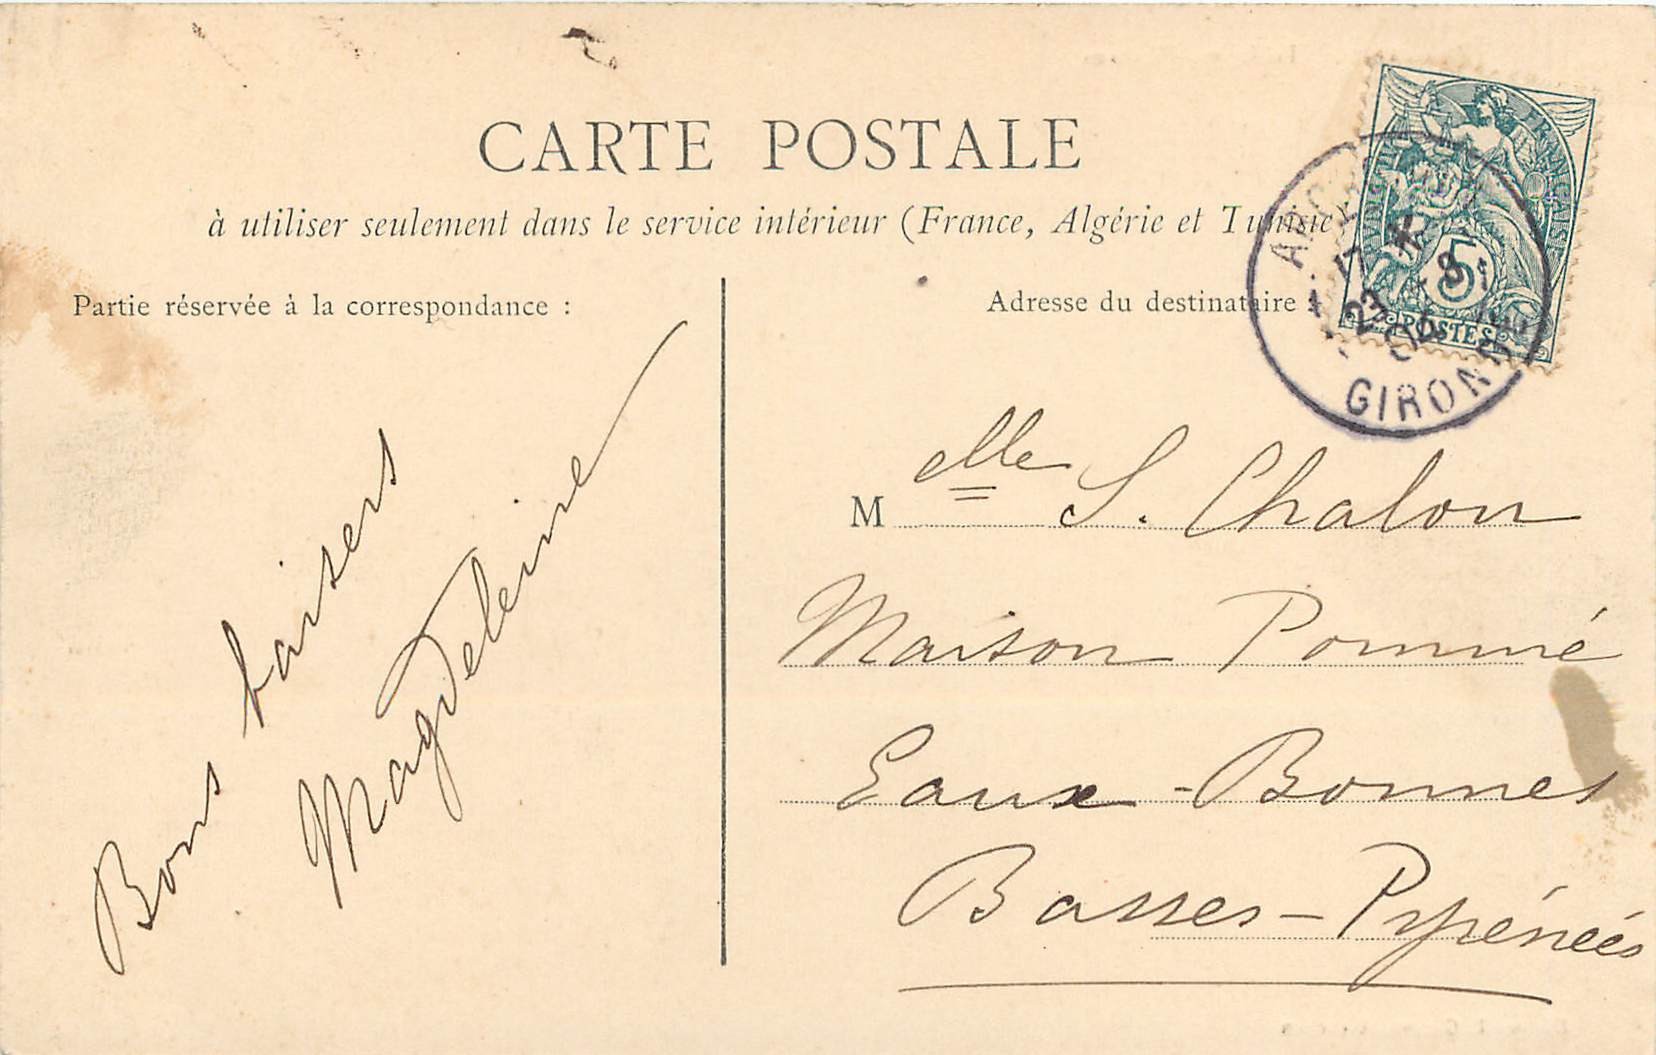 CARTE POSTALE
à utiliser seulement dans le service intérieur (France, Algérie et Tunisie
Partie réservée à la correspondance :
Bons baisers
Magdeleine
Adresse du destinataire :
RÉPUBLIQUE FRANÇAISE
5
POSTES
23
GIRONDE
M elle S. Chalon
Maison Pommé
Eaux-Bonnes
Basses-Pyrénées